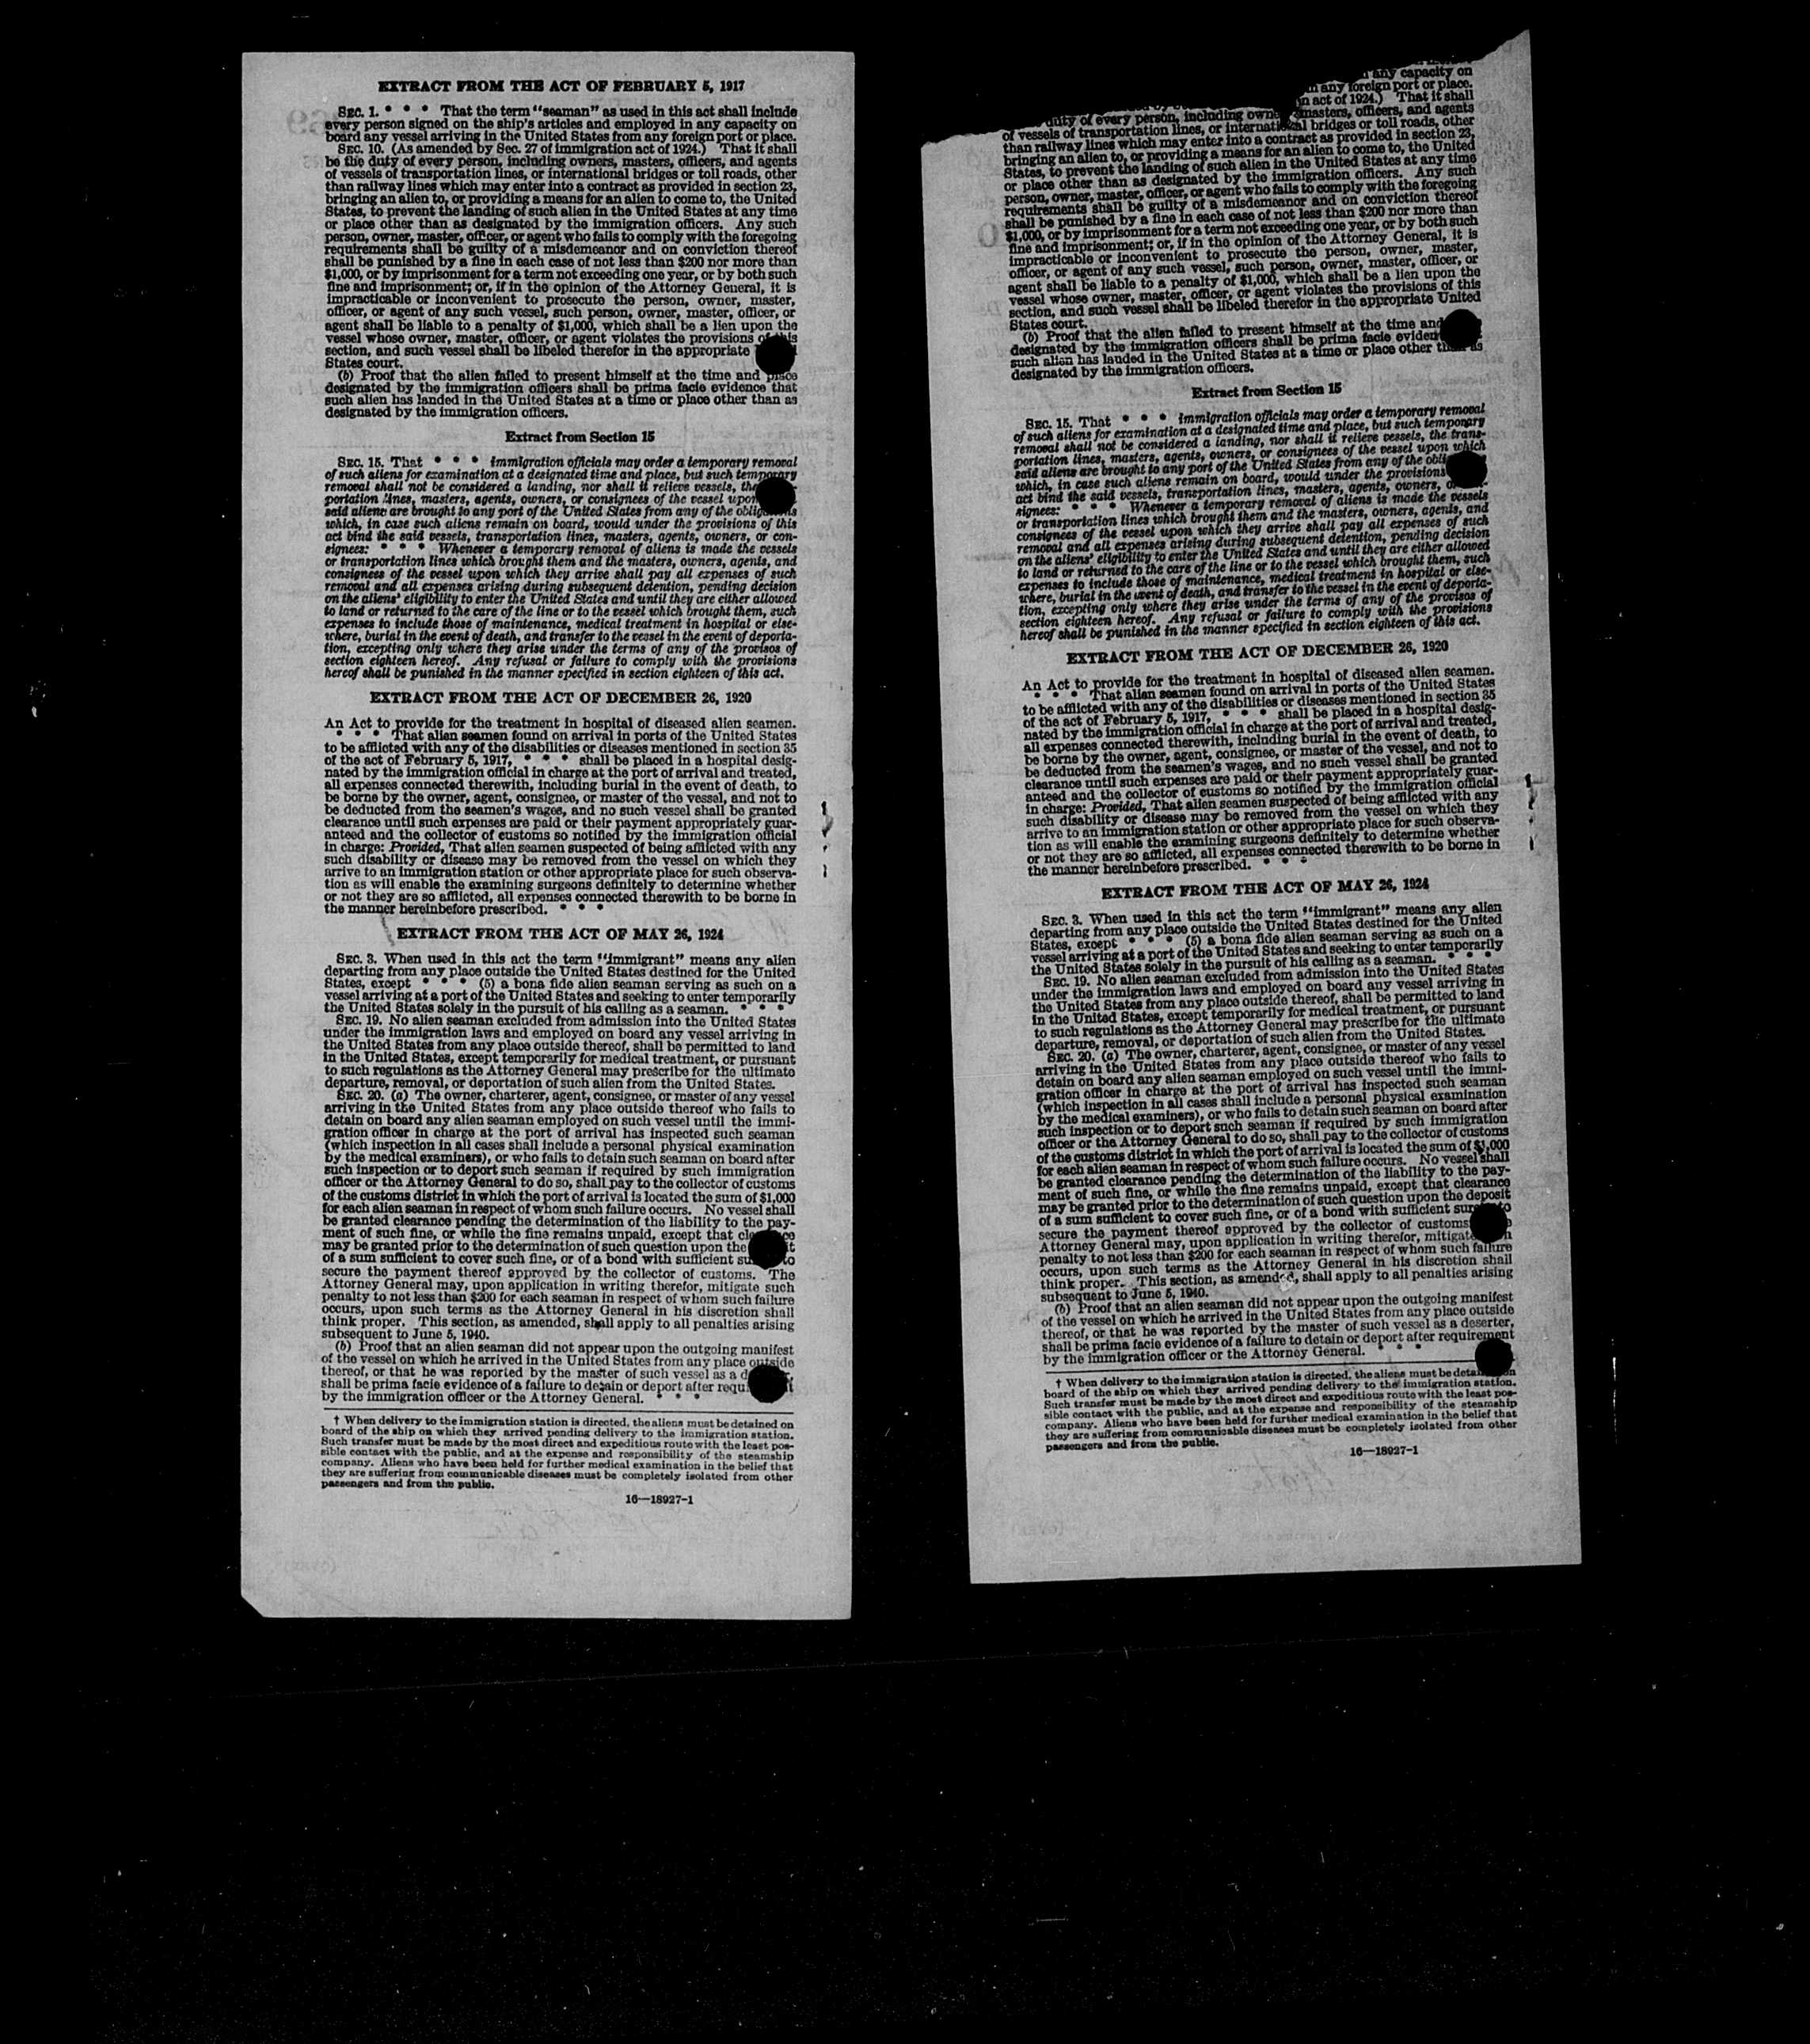 EXTRACT FROM THE ACT OF FEBRUARY 5, 1917
SEC. 1. * * * That the term "seaman" as used in this act shall include
every person signed on the ship's articles and employed in any capacity on
board any vessel arriving in the United States from any foreign port or place.
SEC. 10. (As amended by Sec. 27 of immigration act of 1924.) That it shall
be the duty of every person, including owners, masters, officers, and agents
of vessels of transportation lines, or international bridges or toll roads, other
than railway lines which may enter into a contract as provided in section 23,
bringing an alien to, or providing a means for an alien to come to, the United
States, to prevent the landing of such alien in the United States at any time
or place other than as designated by the immigration officers. Any such
person, owner, master, officer, or agent who fails to comply with the foregoing
requirements shall be guilty of a misdemeanor and on conviction thereof
shall be punished by a fine in each case of not less than $200 nor more than
$1,000, or by imprisonment for a term not exceeding one year, or by both such
fine and imprisonment; or, if in the opinion of the Attorney General, it is
impracticable or inconvenient to prosecute the person, owner, master,
officer, or agent of any such vessel, such person, owner, master, officer, or
agent shall be liable to a penalty of $1,000, which shall be a lien upon the
vessel whose owner, master, officer, or agent violates the provisions of this
section, and such vessel shall be libeled therefor in the appropriate
States court.
(b) Proof that the alien failed to present himself at the time and place
designated by the immigration officers shall be prima facie evidence that
such alien has landed in the United States at a time or place other than as
designated by the immigration officers.
Extract from Section 15
SEC. 15. That * * * immigration officials may order a temporary removal
of such aliens for examination at a designated time and place, but such temporary
removal shall not be considered a landing, nor shall it relieve vessels, the
portation lines, masters, agents, owners, or consignees of the vessel upon
said aliens are brought to any port of the United States from any of the obligations
which, in case such aliens remain on board, would under the provisions of this
act bind the said vessels, transportation lines, masters, agents, owners, or con-
signees: * * * Whenever a temporary removal of aliens is made the vessels
or transportation lines which brought them and the masters, owners, agents, and
consignees of the vessel upon which they arrive shall pay all expenses of such
removal and all expenses arising during subsequent detention, pending decision
on the aliens' eligibility to enter the United States and until they are either allowed
to land or returned to the care of the line or to the vessel which brought them, such
expenses to include those of maintenance, medical treatment in hospital or else-
where, burial in the event of death, and transfer to the vessel in the event of deporta-
tion, excepting only where they arise under the terms of any of the provisos of
section eighteen hereof. Any refusal or failure to comply with the provisions
hereof shall be punished in the manner specified in section eighteen of this act.
EXTRACT FROM THE ACT OF DECEMBER 26, 1920
An Act to provide for the treatment in hospital of diseased alien seamen.
* * * That alien seamen found on arrival in ports of the United States
to be afflicted with any of the disabilities or diseases mentioned in section 35
of the act of February 5, 1917, * * * shall be placed in a hospital desig-
nated by the immigration official in charge at the port of arrival and treated,
all expenses connected therewith, including burial in the event of death, to
be borne by the owner, agent, consignee, or master of the vessel, and not to
be deducted from the seamen's wages, and no such vessel shall be granted
clearance until such expenses are paid or their payment appropriately guar-
anteed and the collector of customs so notified by the immigration official
in charge: Provided, That alien seamen suspected of being afflicted with any
such disability or disease may be removed from the vessel on which they
arrive to an immigration station or other appropriate place for such observa-
tion as will enable the examining surgeons definitely to determine whether
or not they are so afflicted, all expenses connected therewith to be borne in
the manner hereinbefore prescribed. * * *
EXTRACT FROM THE ACT OF MAY 26, 1924
SEC. 3. When used in this act the term "immigrant" means any alien
departing from any place outside the United States destined for the United
States, except * * * (5) a bona fide alien seaman serving as such on a
vessel arriving at a port of the United States and seeking to enter temporarily
the United States solely in the pursuit of his calling as a seaman. * * *
SEC. 19. No alien seaman excluded from admission into the United States
under the immigration laws and employed on board any vessel arriving in
the United States from any place outside thereof, shall be permitted to land
in the United States, except temporarily for medical treatment, or pursuant
to such regulations as the Attorney General may prescribe for the ultimate
departure, removal, or deportation of such alien from the United States.
SEC. 20. (a) The owner, charterer, agent, consignee, or master of any vessel
arriving in the United States from any place outside thereof who fails to
detain on board any alien seaman employed on such vessel until the immi-
gration officer in charge at the port of arrival has inspected such seaman
(which inspection in all cases shall include a personal physical examination
by the medical examiners), or who fails to detain such seaman on board after
such inspection or to deport such seaman if required by such immigration
officer or the Attorney General to do so, shall pay to the collector of customs
of the customs district in which the port of arrival is located the sum of $1,000
for each alien seaman in respect of whom such failure occurs. No vessel shall
be granted clearance pending the determination of the liability to the pay-
ment of such fine, or while the fine remains unpaid, except that clearance
may be granted prior to the determination of such question upon the
of a sum sufficient to cover such fine, or of a bond with sufficient to
secure the payment thereof approved by the collector of customs. The
Attorney General may, upon application in writing therefor, mitigate such
penalty to not less than $200 for each seaman in respect of whom such failure
occurs, upon such terms as the Attorney General in his discretion shall
think proper. This section, as amended, shall apply to all penalties arising
subsequent to June 5, 1940.
(b) Proof that an alien seaman did not appear upon the outgoing manifest
of the vessel on which he arrived in the United States from any place outside
thereof, or that he was reported by the master of such vessel as a
shall be prima facie evidence of a failure to detain or deport after
by the immigration officer or the Attorney General. * * *
† When delivery to the immigration station is directed, the aliens must be detained on
board of the ship on which they arrived pending delivery to the immigration station.
Such transfer must be made by the most direct and expeditious route with the least pos-
sible contact with the public, and at the expense and responsibility of the steamship
company. Aliens who have been held for further medical examination in the belief that
they are suffering from communicable diseases must be completely isolated from other
passengers and from the public.
16—18927-1
any capacity on
any foreign port or place.
act of 1924.) That it shall
duty of every person, including masters, officers, and agents
of vessels of transportation lines, or international bridges or toll roads, other
than railway lines which may enter into a contract as provided in section 23,
bringing an alien to, or providing a means for an alien to come to, the United
States, to prevent the landing of such alien in the United States at any time
or place other than as designated by the immigration officers. Any such
person, owner, master, officer, or agent who fails to comply with the foregoing
requirements shall be guilty of a misdemeanor and on conviction thereof
shall be punished by a fine in each case of not less than $200 nor more than
$1,000, or by imprisonment for a term not exceeding one year, or by both such
fine and imprisonment; or, if in the opinion of the Attorney General, it is
impracticable or inconvenient to prosecute the person, owner, master,
officer, or agent of any such vessel, such person, owner, master, officer, or
agent shall be liable to a penalty of $1,000, which shall be a lien upon the
vessel whose owner, master, officer, or agent violates the provisions of this
section, and such vessel shall be libeled therefor in the appropriate United
States court.
(b) Proof that the alien failed to present himself at the time and
designated by the immigration officers shall be prima facie
such alien has landed in the United States at a time or place other than as
designated by the immigration officers.
Extract from Section 15
SEC. 15. That * * * immigration officials may order a temporary removal
of such aliens for examination at a designated time and place, but such temporary
removal shall not be considered a landing, nor shall it relieve vessels, the trans-
portation lines, masters, agents, owners, or consignees of the vessel upon which
said aliens are brought to any port of the United States from any of the
which, in case such aliens remain on board, would under the provisions
act bind the said vessels, transportation lines, masters, agents, owners,
signees: * * * Whenever a temporary removal of aliens is made the vessels
or transportation lines which brought them and the masters, owners, agents, and
consignees of the vessel upon which they arrive shall pay all expenses of such
removal and all expenses arising during subsequent detention, pending decision
on the aliens' eligibility to enter the United States and until they are either allowed
to land or returned to the care of the line or to the vessel which brought them, such
expenses to include those of maintenance, medical treatment in hospital or else-
where, burial in the event of death, and transfer to the vessel in the event of deporta-
tion, excepting only where they arise under the terms of any of the provisos of
section eighteen hereof. Any refusal or failure to comply with the provisions
hereof shall be punished in the manner specified in section eighteen of this act.
EXTRACT FROM THE ACT OF DECEMBER 26, 1920
An Act to provide for the treatment in hospital of diseased alien seamen.
* * * That alien seamen found on arrival in ports of the United States
to be afflicted with any of the disabilities or diseases mentioned in section 35
of the act of February 5, 1917, * * * shall be placed in a hospital desig-
nated by the immigration official in charge at the port of arrival and treated,
all expenses connected therewith, including burial in the event of death, to
be borne by the owner, agent, consignee, or master of the vessel, and not to
be deducted from the seamen's wages, and no such vessel shall be granted
clearance until such expenses are paid or their payment appropriately guar-
anteed and the collector of customs so notified by the immigration official
in charge: Provided, That alien seamen suspected of being afflicted with any
such disability or disease may be removed from the vessel on which they
arrive to an immigration station or other appropriate place for such observa-
tion as will enable the examining surgeons definitely to determine whether
or not they are so afflicted, all expenses connected therewith to be borne in
the manner hereinbefore prescribed. * * *
EXTRACT FROM THE ACT OF MAY 26, 1924
SEC. 3. When used in this act the term "immigrant" means any alien
departing from any place outside the United States destined for the United
States, except * * * (5) a bona fide alien seaman serving as such on a
vessel arriving at a port of the United States and seeking to enter temporarily
the United States solely in the pursuit of his calling as a seaman. * * *
SEC. 19. No alien seaman excluded from admission into the United States
under the immigration laws and employed on board any vessel arriving in
the United States from any place outside thereof, shall be permitted to land
in the United States, except temporarily for medical treatment, or pursuant
to such regulations as the Attorney General may prescribe for the ultimate
departure, removal, or deportation of such alien from the United States.
SEC. 20. (a) The owner, charterer, agent, consignee, or master of any vessel
arriving in the United States from any place outside thereof who fails to
detain on board any alien seaman employed on such vessel until the immi-
gration officer in charge at the port of arrival has inspected such seaman
(which inspection in all cases shall include a personal physical examination
by the medical examiners), or who fails to detain such seaman on board after
such inspection or to deport such seaman if required by such immigration
officer or the Attorney General to do so, shall pay to the collector of customs
of the customs district in which the port of arrival is located the sum of $1,000
for each alien seaman in respect of whom such failure occurs. No vessel shall
be granted clearance pending the determination of the liability to the pay-
ment of such fine, or while the fine remains unpaid, except that clearance
may be granted prior to the determination of such question upon the deposit
of a sum sufficient to cover such fine, or of a bond with sufficient to
secure the payment thereof approved by the collector of customs
Attorney General may, upon application in writing therefor, mitigate
penalty to not less than $200 for each seaman in respect of whom such failure
occurs, upon such terms as the Attorney General in his discretion shall
think proper. This section, as amended, shall apply to all penalties arising
subsequent to June 5, 1940.
(b) Proof that an alien seaman did not appear upon the outgoing manifest
of the vessel on which he arrived in the United States from any place outside
thereof, or that he was reported by the master of such vessel as a deserter,
shall be prima facie evidence of a failure to detain or deport after requirement
by the immigration officer or the Attorney General. * * *
† When delivery to the immigration station is directed, the aliens must be
board of the ship on which they arrived pending delivery to the immigration station.
Such transfer must be made by the most direct and expeditious route with the least pos-
sible contact with the public, and at the expense and responsibility of the steamship
company. Aliens who have been held for further medical examination in the belief that
they are suffering from communicable diseases must be completely isolated from other
passengers and from the public.
16—18927-1